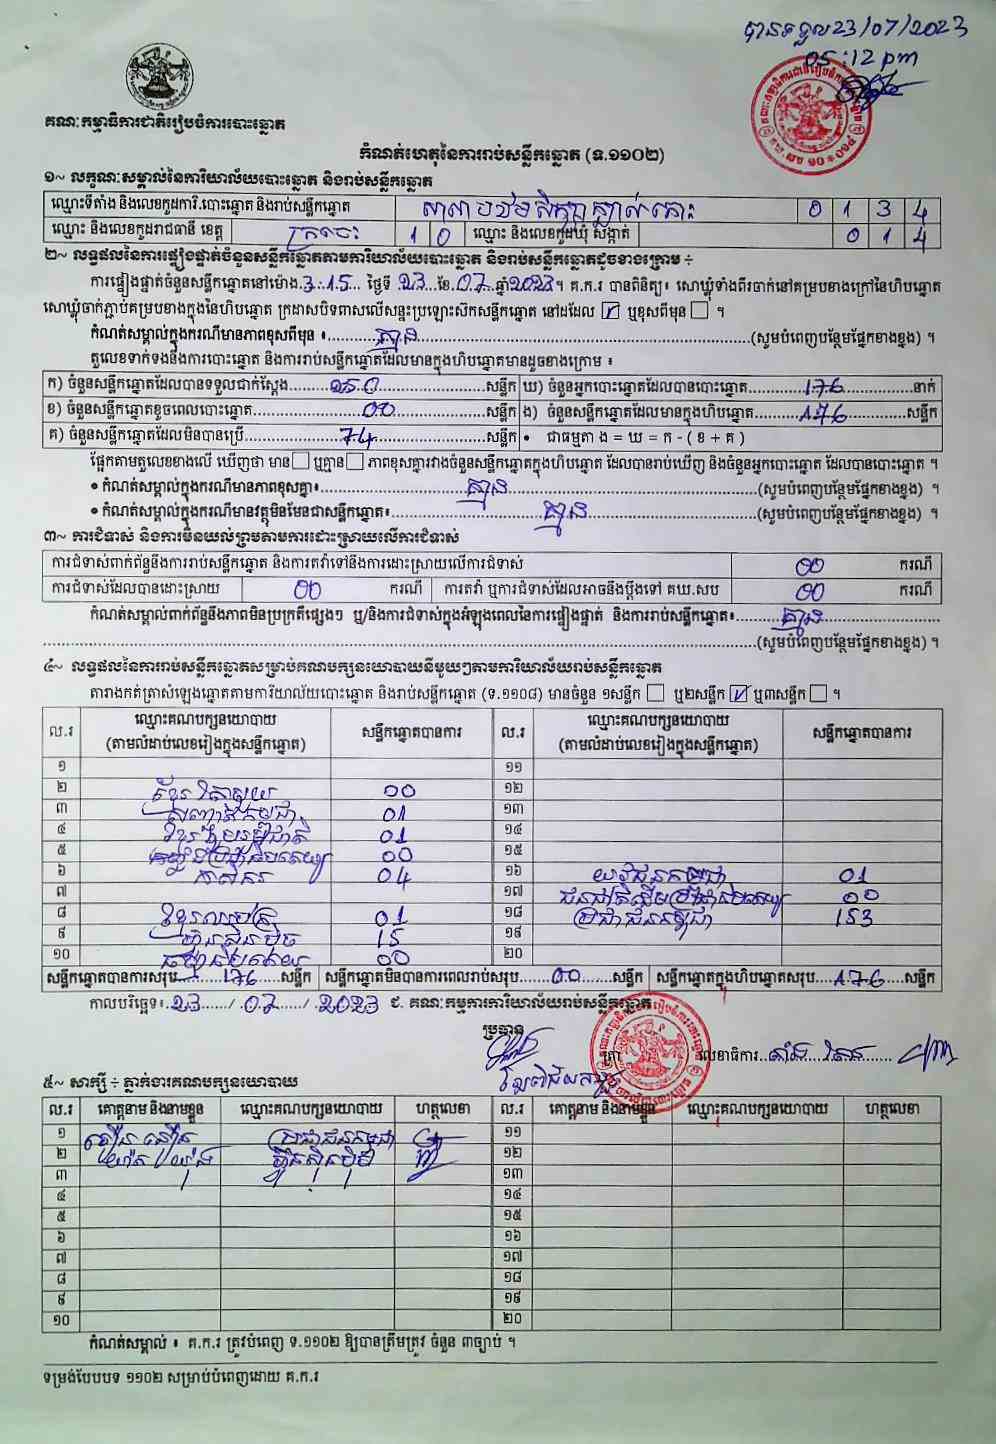 បានទទួល 23/07/2023
05:12 pm
គណៈកម្មាធិការជាតិរៀបចំការបោះឆ្នោត
កំណត់ហេតុនៃការរាប់សន្លឹកឆ្នោត (ទ.១១០២)
១~ លក្ខណៈសម្គាល់នៃការិយាល័យបោះឆ្នោត និងរាប់សន្លឹកឆ្នោត
ឈ្មោះទីតាំង និងលេខកូដការិ.បោះឆ្នោត និងរាប់សន្លឹកឆ្នោត សាលាបឋមសិក្សាក្បាលកោះ 0 1 3 4
ឈ្មោះ និងលេខកូដរាជធានី ខេត្ត ក្រចេះ 1 0 ឈ្មោះ និងលេខកូដឃុំ សង្កាត់ 0 1 4
២~ លទ្ធផលនៃការផ្ទៀងផ្ទាត់ចំនួនសន្លឹកឆ្នោតតាមការិយាល័យបោះឆ្នោត និងរាប់សន្លឹកឆ្នោតដូចខាងក្រោម ÷
ការផ្ទៀងផ្ទាត់ចំនួនសន្លឹកឆ្នោតនៅម៉ោង.3:15... ថ្ងៃទី 23..ខែ.07..ឆ្នាំ2023។ គ.ក.រ បានពិនិត្យ៖ សោឃ្មុំទាំងពីរចាក់នៅគម្របខាងក្រៅនៃហិបឆ្នោត
សោឃ្មុំចាក់ភ្ជាប់គម្របខាងក្នុងនៃហិបឆ្នោត ក្រដាសបិទពាសលើសន្ទះប្រឡោះសិកសន្លឹកឆ្នោត នៅដដែល ☑ ឬខុសពីមុន ☐ ។
កំណត់សម្គាល់ក្នុងករណីមានភាពខុសពីមុន ៖ គ្មាន (សូមបំពេញបន្ថែមផ្នែកខាងខ្នង) ។
តួលេខទាក់ទងនឹងការបោះឆ្នោត និងការរាប់សន្លឹកឆ្នោតដែលមានក្នុងហិបឆ្នោតមានដូចខាងក្រោម ៖
ក) ចំនួនសន្លឹកឆ្នោតដែលបានទទួលជាក់ស្តែង 250 សន្លឹក ឃ) ចំនួនអ្នកបោះឆ្នោតដែលបានបោះឆ្នោត 176 នាក់
ខ) ចំនួនសន្លឹកឆ្នោតខូចពេលបោះឆ្នោត 00 សន្លឹក ង) ចំនួនសន្លឹកឆ្នោតដែលមានក្នុងហិបឆ្នោត 176 សន្លឹក
គ) ចំនួនសន្លឹកឆ្នោតដែលមិនបានប្រើ 74 សន្លឹក • ជាធម្មតា ង = ឃ = ក - ( ខ + គ )
ផ្អែកតាមតួលេខខាងលើ ឃើញថា មាន ☐ ឬគ្មាន ☐ ភាពខុសគ្នារវាងចំនួនសន្លឹកឆ្នោតក្នុងហិបឆ្នោត ដែលបានរាប់ឃើញ និងចំនួនអ្នកបោះឆ្នោត ដែលបានបោះឆ្នោត ។
• កំណត់សម្គាល់ក្នុងករណីមានភាពខុសគ្នា៖ គ្មាន (សូមបំពេញបន្ថែមផ្នែកខាងខ្នង) ។
• កំណត់សម្គាល់ក្នុងករណីមានវត្ថុមិនមែនជាសន្លឹកឆ្នោត៖ គ្មាន (សូមបំពេញបន្ថែមផ្នែកខាងខ្នង) ។
៣~ ការជំទាស់ និងការមិនយល់ព្រមតាមការដោះស្រាយលើការជំទាស់
ការជំទាស់ពាក់ព័ន្ធនឹងការរាប់សន្លឹកឆ្នោត និងការតវ៉ាទៅនឹងការដោះស្រាយលើការជំទាស់ 00 ករណី
ការជំទាស់ដែលបានដោះស្រាយ 00 ករណី ការតវ៉ា ឬការជំទាស់ដែលអាចនឹងប្តឹងទៅ គឃ.សប 00 ករណី
កំណត់សម្គាល់ពាក់ព័ន្ធនឹងភាពមិនប្រក្រតីផ្សេងៗ ឬ/និងការជំទាស់ក្នុងអំឡុងពេលនៃការផ្ទៀងផ្ទាត់ និងការរាប់សន្លឹកឆ្នោត៖ គ្មាន
(សូមបំពេញបន្ថែមផ្នែកខាងខ្នង) ។
៤~ លទ្ធផលនៃការរាប់សន្លឹកឆ្នោតសម្រាប់គណបក្សនយោបាយនីមួយៗតាមការិយាល័យរាប់សន្លឹកឆ្នោត
តារាងកត់ត្រាសំឡេងឆ្នោតតាមការិយាល័យបោះឆ្នោត និងរាប់សន្លឹកឆ្នោត (ទ.១១០៨) មានចំនួន ១សន្លឹក ☐ ឬ២សន្លឹក ☑ ឬ៣សន្លឹក ☐ ។
ល.រ ឈ្មោះគណបក្សនយោបាយ (តាមលំដាប់លេខរៀងក្នុងសន្លឹកឆ្នោត) សន្លឹកឆ្នោតបានការ ល.រ ឈ្មោះគណបក្សនយោបាយ (តាមលំដាប់លេខរៀងក្នុងសន្លឹកឆ្នោត) សន្លឹកឆ្នោតបានការ
១ ១១
២ ខ្មែរតែមួយ 00 ១២
៣ សញ្ជាតិកម្ពុជា 01 ១៣
៤ ខ្មែររួបរួមជាតិ 01 ១៤
៥ 00 ១៥
៦ កសិករ 04 ១៦ យុវជនកម្ពុជា 01
៧ ១៧ ជនជាតិដើមប្រជាធិបតេយ្យ 00
៨ 01 ១៨ ប្រជាជនកម្ពុជា 153
៩ ហ៊្វុនស៊ិនប៉ិច 15 ១៩
១០ ធម្មាធិបតេយ្យ 00 ២០
សន្លឹកឆ្នោតបានការសរុប 176 សន្លឹក សន្លឹកឆ្នោតមិនបានការពេលរាប់សរុប 00 សន្លឹក សន្លឹកឆ្នោតក្នុងហិបឆ្នោតសរុប 176 សន្លឹក
កាលបរិច្ឆេទ៖ 23 / 07 / 2023 ជ. គណៈកម្មការការិយាល័យរាប់សន្លឹកឆ្នោត
ប្រធាន
ត្រា លេខាធិការ
៥~ សាក្សី ÷ ភ្នាក់ងារគណបក្សនយោបាយ
ល.រ គោត្តនាម និងនាមខ្លួន ឈ្មោះគណបក្សនយោបាយ ហត្ថលេខា ល.រ គោត្តនាម និងនាមខ្លួន ឈ្មោះគណបក្សនយោបាយ ហត្ថលេខា
១ ប្រជាជនកម្ពុជា ១១
២ ហ៊្វុនស៊ិនប៉ិច ១២
៣ ១៣
៤ ១៤
៥ ១៥
៦ ១៦
៧ ១៧
៨ ១៨
៩ ១៩
១០ ២០
កំណត់សម្គាល់ ៖ គ.ក.រ ត្រូវបំពេញ ទ.១១០២ ឱ្យបានត្រឹមត្រូវ ចំនួន ៣ច្បាប់ ។
ទម្រង់បែបបទ ១១០២ សម្រាប់បំពេញដោយ គ.ក.រ